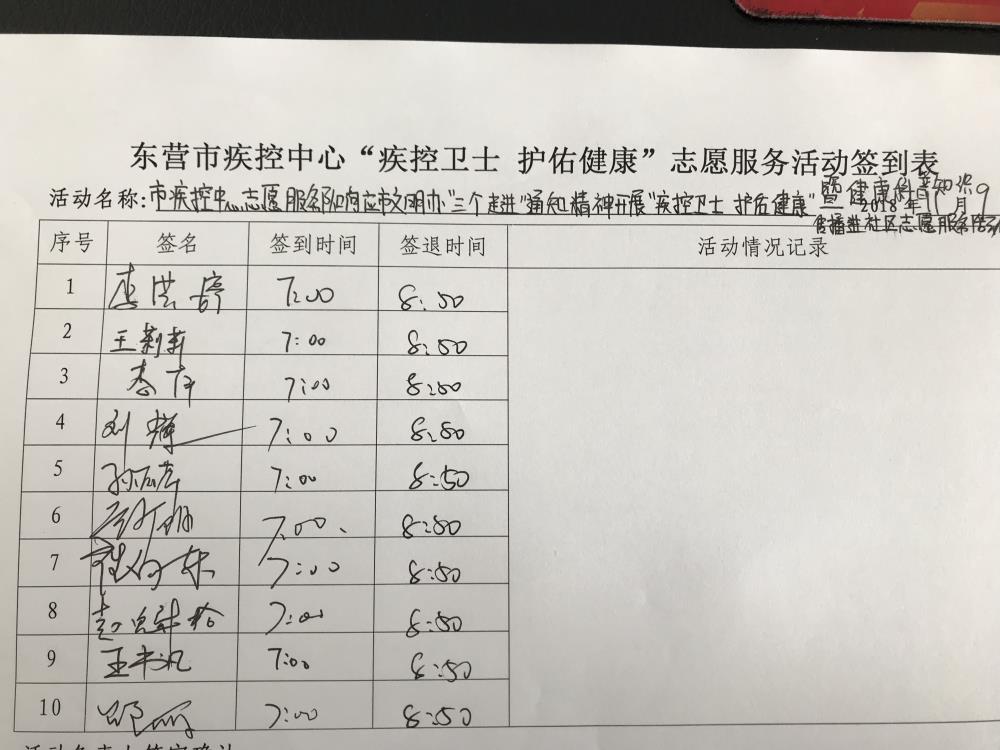 东营市疾控中心“疾控卫士 护佑健康”志愿服务活动签到表
活动名称:市疾控中心志愿服务队响应市文明办“三个走进”通知精神开展“疾控卫士 护佑健康”暨健康科普知识
2018年 月9
传播进社区志愿服务活动
序号 签名 签到时间 签退时间 活动情况记录
1 李洪 7:00 8:50
2 王莉莉 7:00 8:50
3 李 7:00 8:50
4 刘 7:00 8:50
5 孙 7:00 8:50
6 7:00 8:50
7 7:00 8:50
8 7:00 8:50
9 王 7:00 8:50
10 7:00 8:50